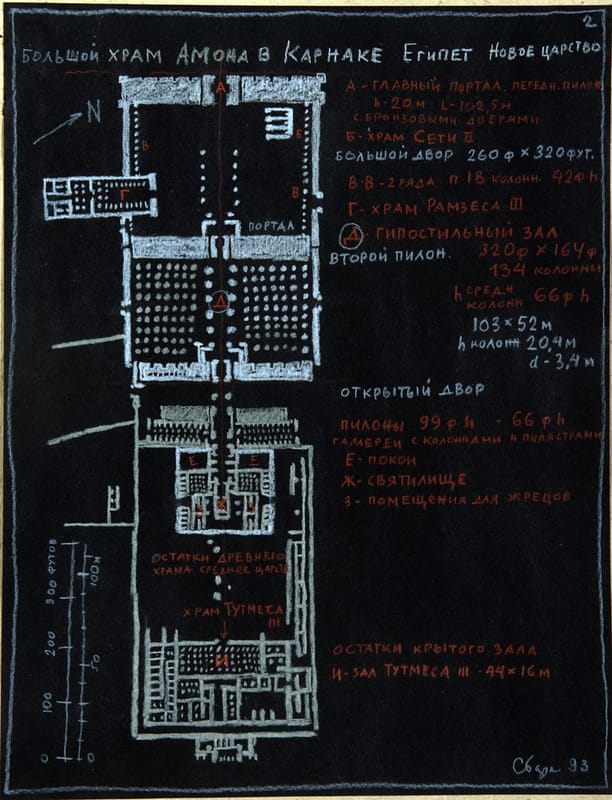 2
БОЛЬШОЙ ХРАМ АМОНА В КАРНАКЕ ЕГИПЕТ НОВОЕ ЦАРСТВО
А - ГЛАВНЫЙ ПОРТАЛ. ПЕРЕДН. ПИЛОН
h - 20 м L - 102,5 м
С БРОНЗОВЫМИ ДВЕРЯМИ
Б - ХРАМ СЕТИ II
БОЛЬШОЙ ДВОР 260 ф × 320 фут.
В-В - 2 РЯДА П 18 КОЛОНН. 42 ф h
Г - ХРАМ РАМЗЕСА III
Д - ГИПОСТИЛЬНЫЙ ЗАЛ
ВТОРОЙ ПИЛОН. 320 ф × 164 ф
134 КОЛОННЫ
h СРЕДН КОЛОНН 66 ф h
103 × 52 м
h КОЛОНН 20,4 м
d - 3,4 м
ОТКРЫТЫЙ ДВОР
ПИЛОНЫ 99 ф h - 66 ф h
ГАЛЛЕРЕИ С КОЛОННАМИ И ПИЛЯСТРАМИ
Е - ПОКОИ
Ж - СВЯТИЛИЩЕ
З - ПОМЕЩЕНИЯ ДЛЯ ЖРЕЦОВ
ОСТАТКИ КРЫТОГО ЗАЛА
И - ЗАЛ ТУТМЕСА III - 44 × 16 м
N
А
Б
В
В
Г
ПОРТАЛ
Д
Е
Е
Ж
ОСТАТКИ ДРЕВНЕГО
ХРАМА - СРЕДНЕЕ ЦАРСТ
ХРАМ ТУТМЕСА
III
И
300 ФУТОВ
200
100
0
100 м
50
0
93